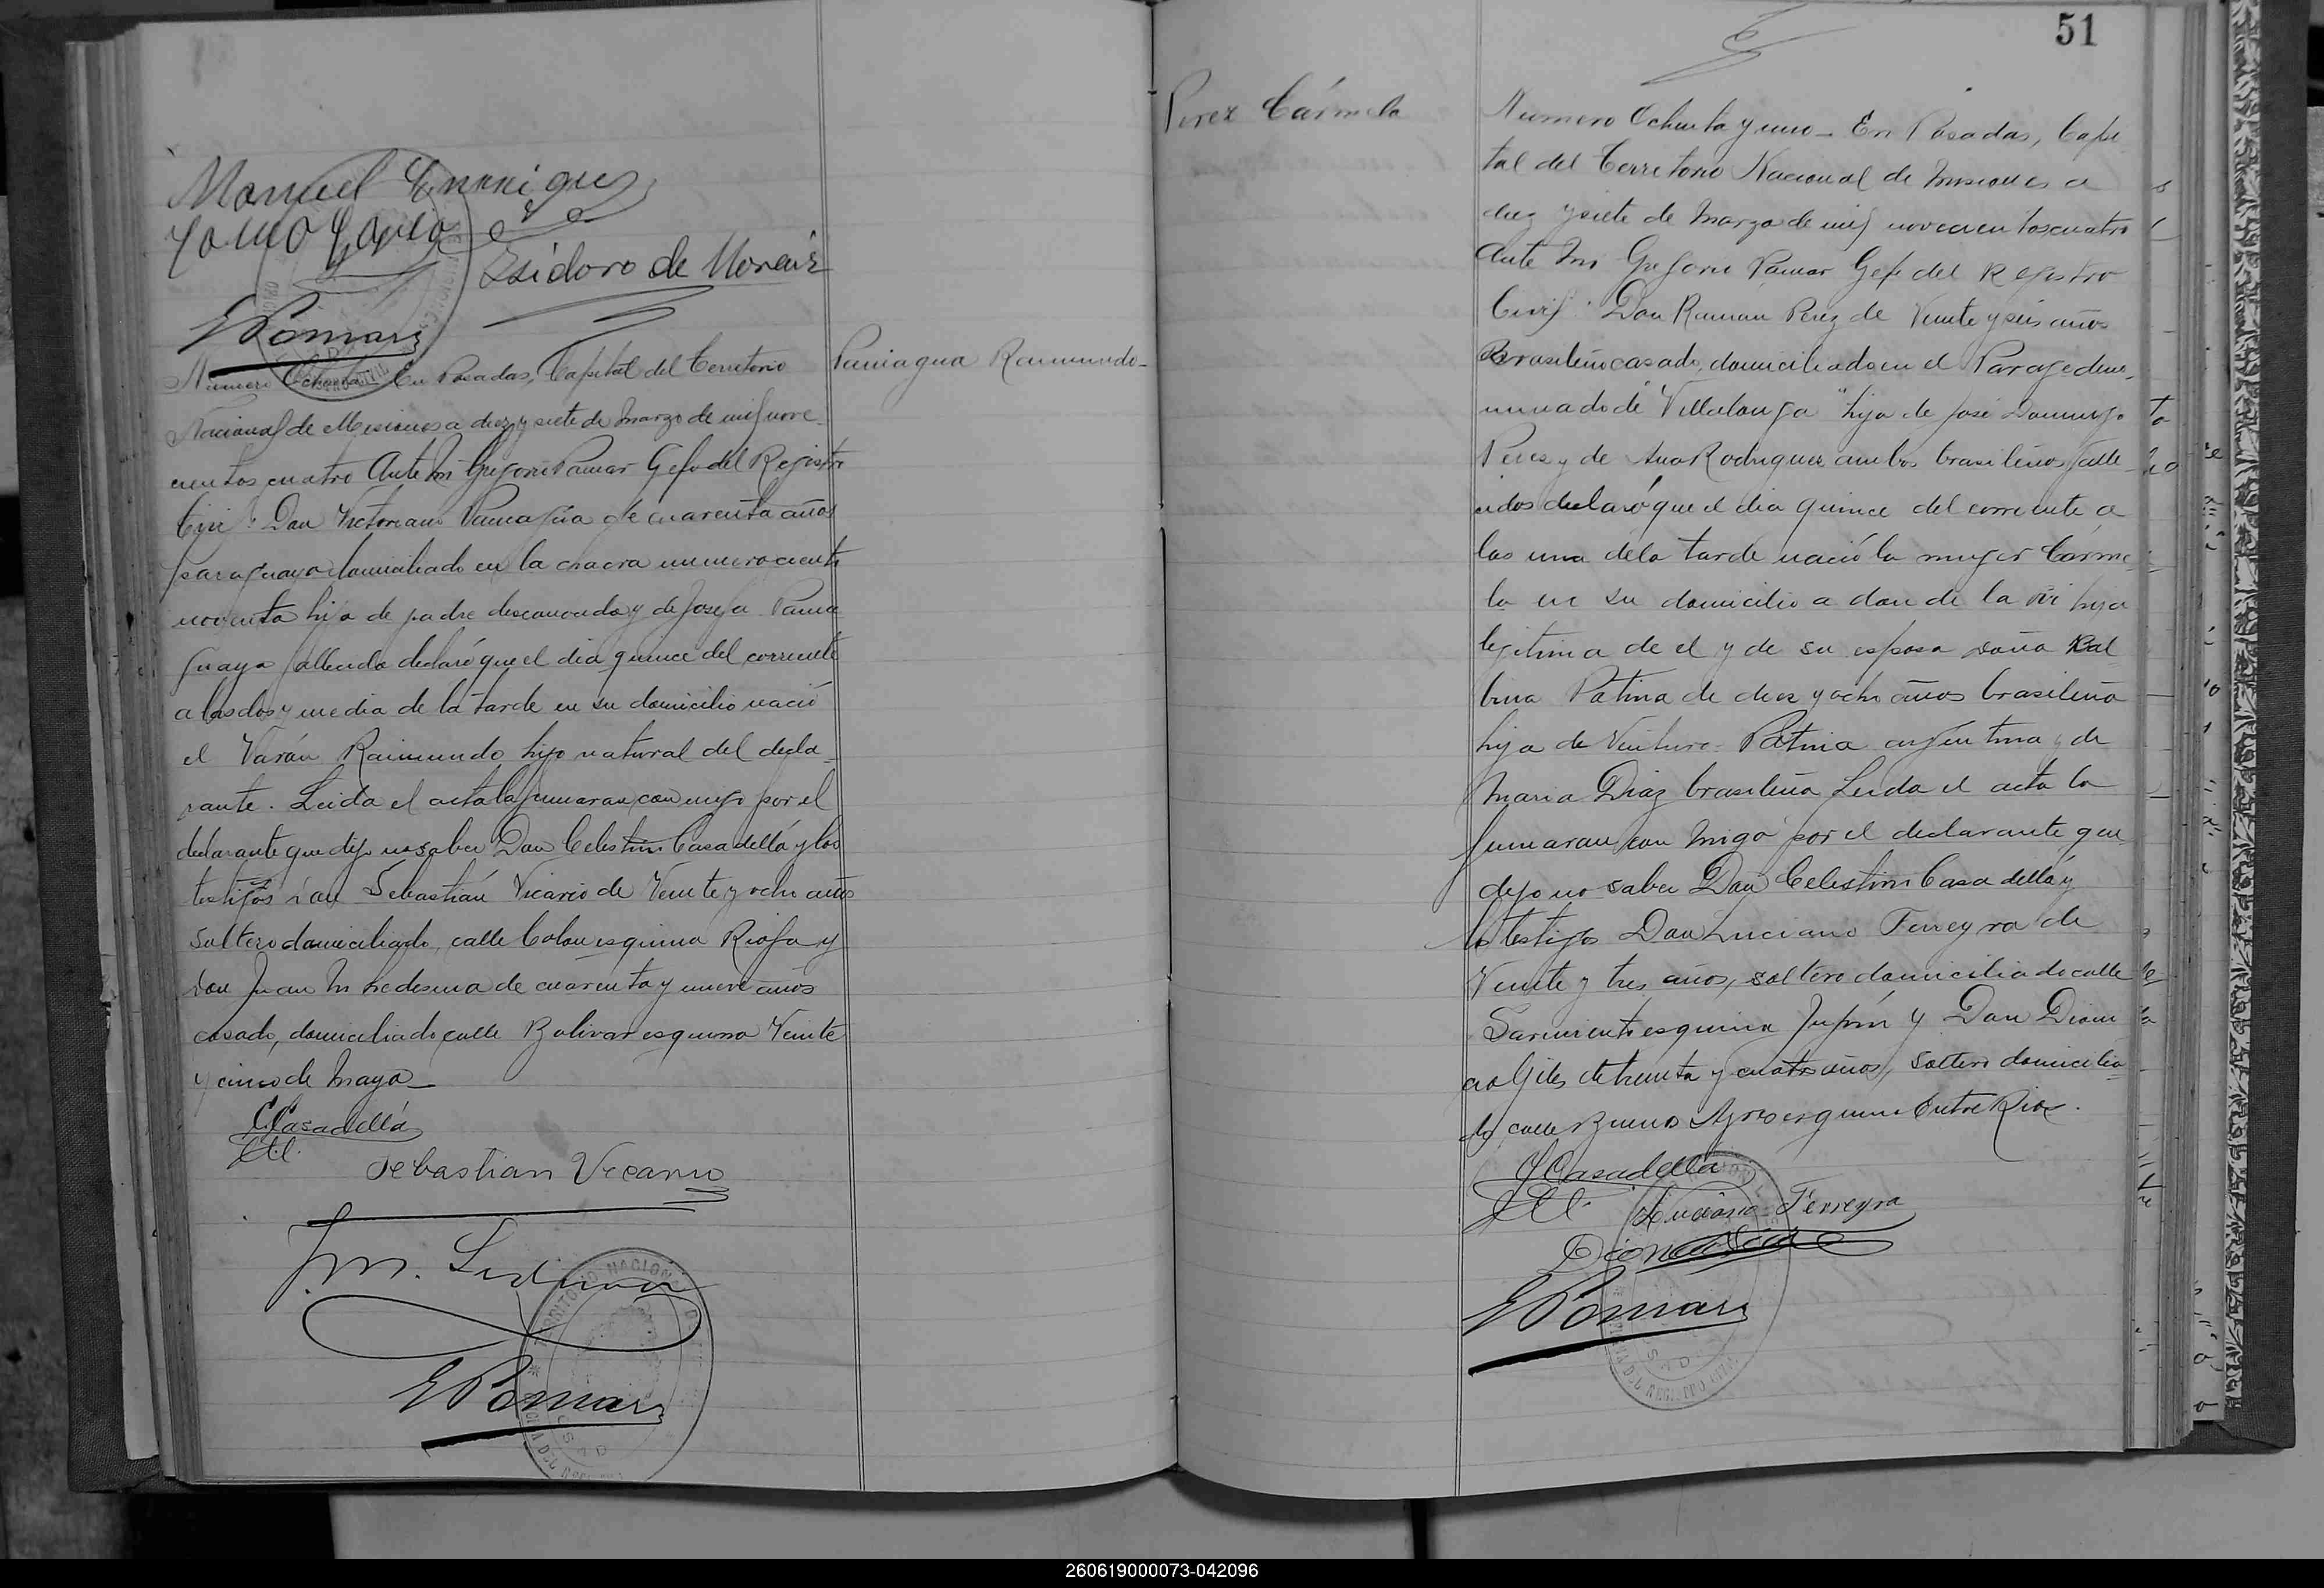 Manuel Enrriques
Isidoro de Moraiz
GPomar
Numero Ochenta_ En Posadas, Capital del Territorio
Paniagua Raimundo_
Nacional de Misiones a diez y siete de Marzo de mil nove_
cientos cuatro Ante Mi Gregorio Pomar Gefe del Registro
Civil: Don Victoriano Paniagua de cuarenta años
paraguayo domiciliado en la chacra numero ciento
noventa hijo de padre desconocido y de Josefa Pania
guaya fallecida declaró que el dia quince del corriente
a las dos y media de la tarde en su domicilio nació
el Varón Raimundo hijo natural del decla_
rante. Leida el acta la firmaran con migo por el
declarante que dijo no saber Don Celestino Casadellá y los
testigos Don Sebastián Vicario de Veinte y ocho años
soltero domiciliado, calle Colon esquina Rioja y
Don Juan M Ledesma de cuarenta y nueve años
casado, domiciliado calle Bolivar esquina Veinte
y cinco de Mayo_
CCasadellá
Sebastian Vicario
J. M. Ledesma
GPomar
51
Perez Cármela
Numero Ochenta y uno_ En Posadas, Capi
tal del Territorio Nacional de Misiones a
diez y siete de Marzo de mil novecientos cuatro
Ante Mi Gregorio Pomar Gefe del Registro
Civil: Don Ramon Perez de Veinte y seis años
Brasileño casado, domiciliado en el Parage deno_
minado de "Villalonga" hijo de José Domingo
Perez y de Ana Rodriguez ambos brasileños falle_
cidos declaró que el dia quince del corriente a
las una de la tarde nació la muger Cárme_
la en su domicilio a donde la vi hija
legitima de el y de su esposa doña Bal
bina Patina de diez y ocho años brasileña
hija de Ventura Patina argentina y de
Maria Diaz brasileña Leida el acta la
firmaran con migo por el declarante que
dijo no saber Don Celestino Casadellá y
los testigos Don Luciano Ferreyra de
Veinte y tres años, soltero domiciliado calle
Sarmiento esquina Junín y Don Dioni
cio Giles de treinta y cuatro años, soltero domicilia_
do calle Buenos Ayres esquina Entre Rios.
CCasadellá
Luciano Ferreyra
GPomar
260619000073-042096